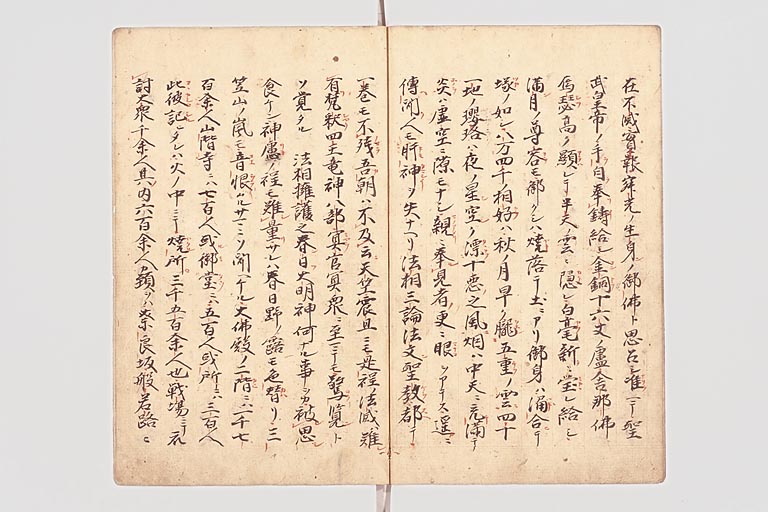 在不滅實報寂光ノ生身ノ御佛ト思召シ准ニテ聖
武皇帝ノ手自奉鋳給シ金銅十六丈ノ盧舎那佛
烏瑟高ノ顕レテ半天ノ雲ニ隠レ白毫新ニ瑩レ給シ
満月ノ尊容モ御クシハ焼落テ土ニアリ御身ハ涌合テ
塚ノ如シ八万四千ノ相好ハ秋ノ月早ノ朧五重ノ雲四十
一地ノ瓔珞ハ夜ノ星空ノ漂十悪之風烟ハ中天ニ充満テ
炎ハ虚空ニ隙モナシ親ニ奉見者更ニ眼ヲアテス遥ニ
傳聞人モ肝神ヲ失ナヘリ法相三論法文聖教都テ
一巻モ不残吾朝ハ不及云天竺震旦ニモ是程ノ法滅ハ難
有梵釈四王竜神八部冥官冥衆ニ至ニテモ驚覧ト
ソ覚タル 法相擁護之春日大明神何ナル事ヲカ被思
食ケン神慮ノ程モ難量サレハ春日野ノ露モ色替リ三
笠山ノ嵐モ音恨タルサマニソ聞ヘケル大佛殿ノ二階ニハ千七
百余人山階寺ニハ七百余人或御堂ニハ五百人或所ニハ三百人
此彼記シタレハ火ノ中ニテ焼所三千五百余人也戦場ニテ
討大衆千余人其内六百余人カ頸ヲハ奈良坂般若路ニ